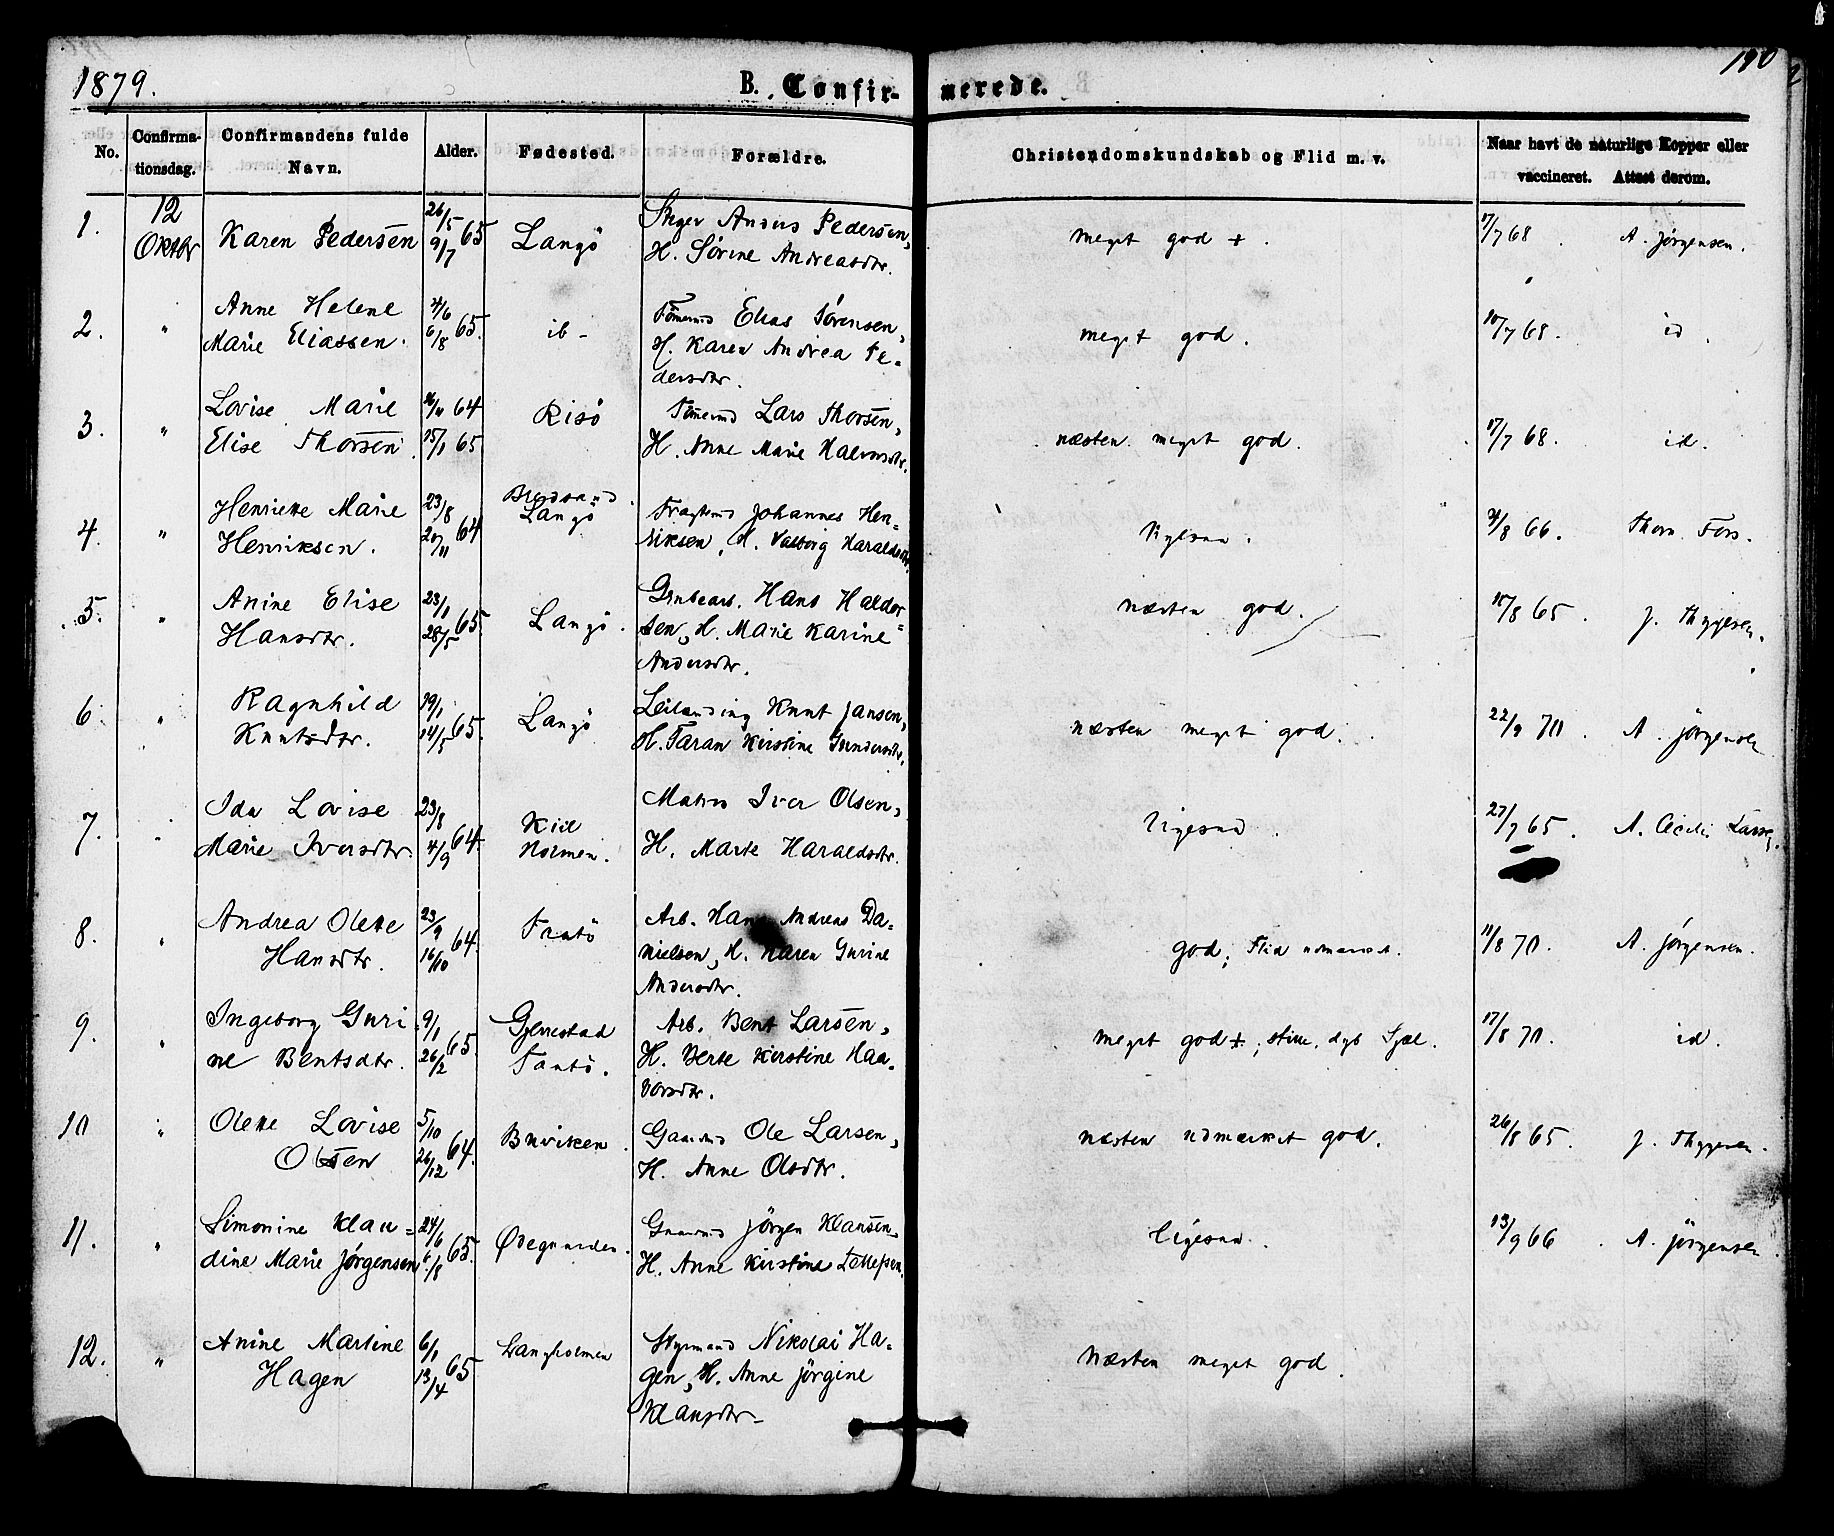 1879.
B. Confirmerede.
190
No.
Confirmationsdag.
Confirmandens fulde
Navn.
Alder.
Fødested.
Forældre.
Christendomskundskab og Flid m. v.
Naar havt de naturlige Kopper eller
vaccineret. Attest derom.
1. 12 Oktbr Karen Pedersen 26/5 9/7 65 Langö
Pedersen, H. Sørine Andreasdtr.
meget god + . 17/7 68 A. Jørgensen.
2. " Anne Helene
Marie Eliassen. 4/6 6/8 65. ib -
Elias Sørensen,
H. Karen Andrea Pe-
dersdtr.
meget god. 17/7 68. id.
3. " Lovise Marie
Elise Thorsen. 64 15/1 65 Risö
Lars Thorsen,
H. Anne Marie Halvorsdtr.
næsten meget god. 17/7 68. id.
4 " Henriette Marie
Henriksen. 23/8 64 Langö
Johannes Hen-
riksen, H. Valborg Haraldsdtr.
ligesaa. 66.
5. " Anine Elise
Hansdtr. 23/1 28/5 65. Langö.
Grubearb. Hans Haldor-
sen, H. Marie Karine
Andersdtr.
næsten god. 65. J. Thygesen.
6. " Ragnhild
Knutsdtr. 19/1 14/5 65. Langö
Leilænding Knut Jansen,
H. Taran Kirstine Gundersdtr.
næsten meget god. 22/9 70 A. Jørgensen
7. " Ida Lovise
Marie Iversdtr. 23/8 4/9 64. Kiil
Holmen.
Matros Iver Olsen,
H. Marte Haraldsdtr.
ligesaa. 27/7 65. A. Cecilie
8. " Andrea Olette
Hansdtr. 23/9 16/10 64.
Arb. Hans Andreas Da-
nielsen, H. Karen Gurine
Andersdtr.
god; Flid udmærket. 11/8 70. A. Jørgensen.
9. " Ingeborg Guri
ne Bentsdtr. 9/1 26/2 65 Gjerrestad
Arb. Bent Larsen,
H. Berte Kirstine Haa-
vorsdtr.
meget god +; stille, dyb Sjæl. 17/8 70. id.
10 " Olette Lovise
Olsen 5/10 26/12 64. Buviken.
Gaamd Ole Larsen,
H. Anne Olsdtr.
næsten udmærket god. 26/8 65. J. Thygesen.
11. " Simonine Klau-
dine Marie Jørgensen 24/6 6/8 65. Ødegaarden.
Jörgen Klausen,
H. Anne Kirstine
ligesaa. 13/9 66. A. Jörgensen.
12. " Anine Martine
Hagen 6/1 13/4 65 Langholmen
Styrmand Nikolai Ha-
gen, H. Anne Jörgine
Klausdtr.
Næsten meget god.